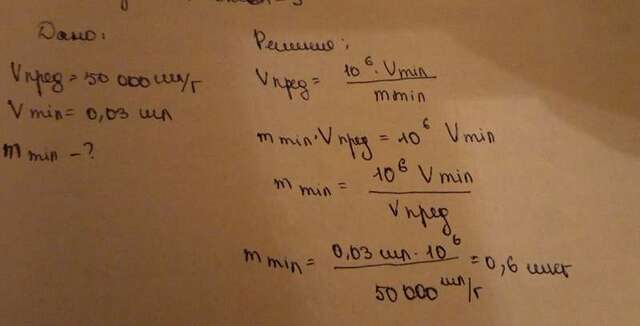 Дано:
Vпред = 50 000 мл/г
Vmin = 0,03 мл
m min - ?
Решение:
Vпред = 10⁶ · Vmin / m min
m min · Vпред = 10⁶ Vmin
m min = 10⁶ Vmin / Vпред
m min = 0,03 мл · 10⁶ / 50 000 мл/г = 0,6 мкг